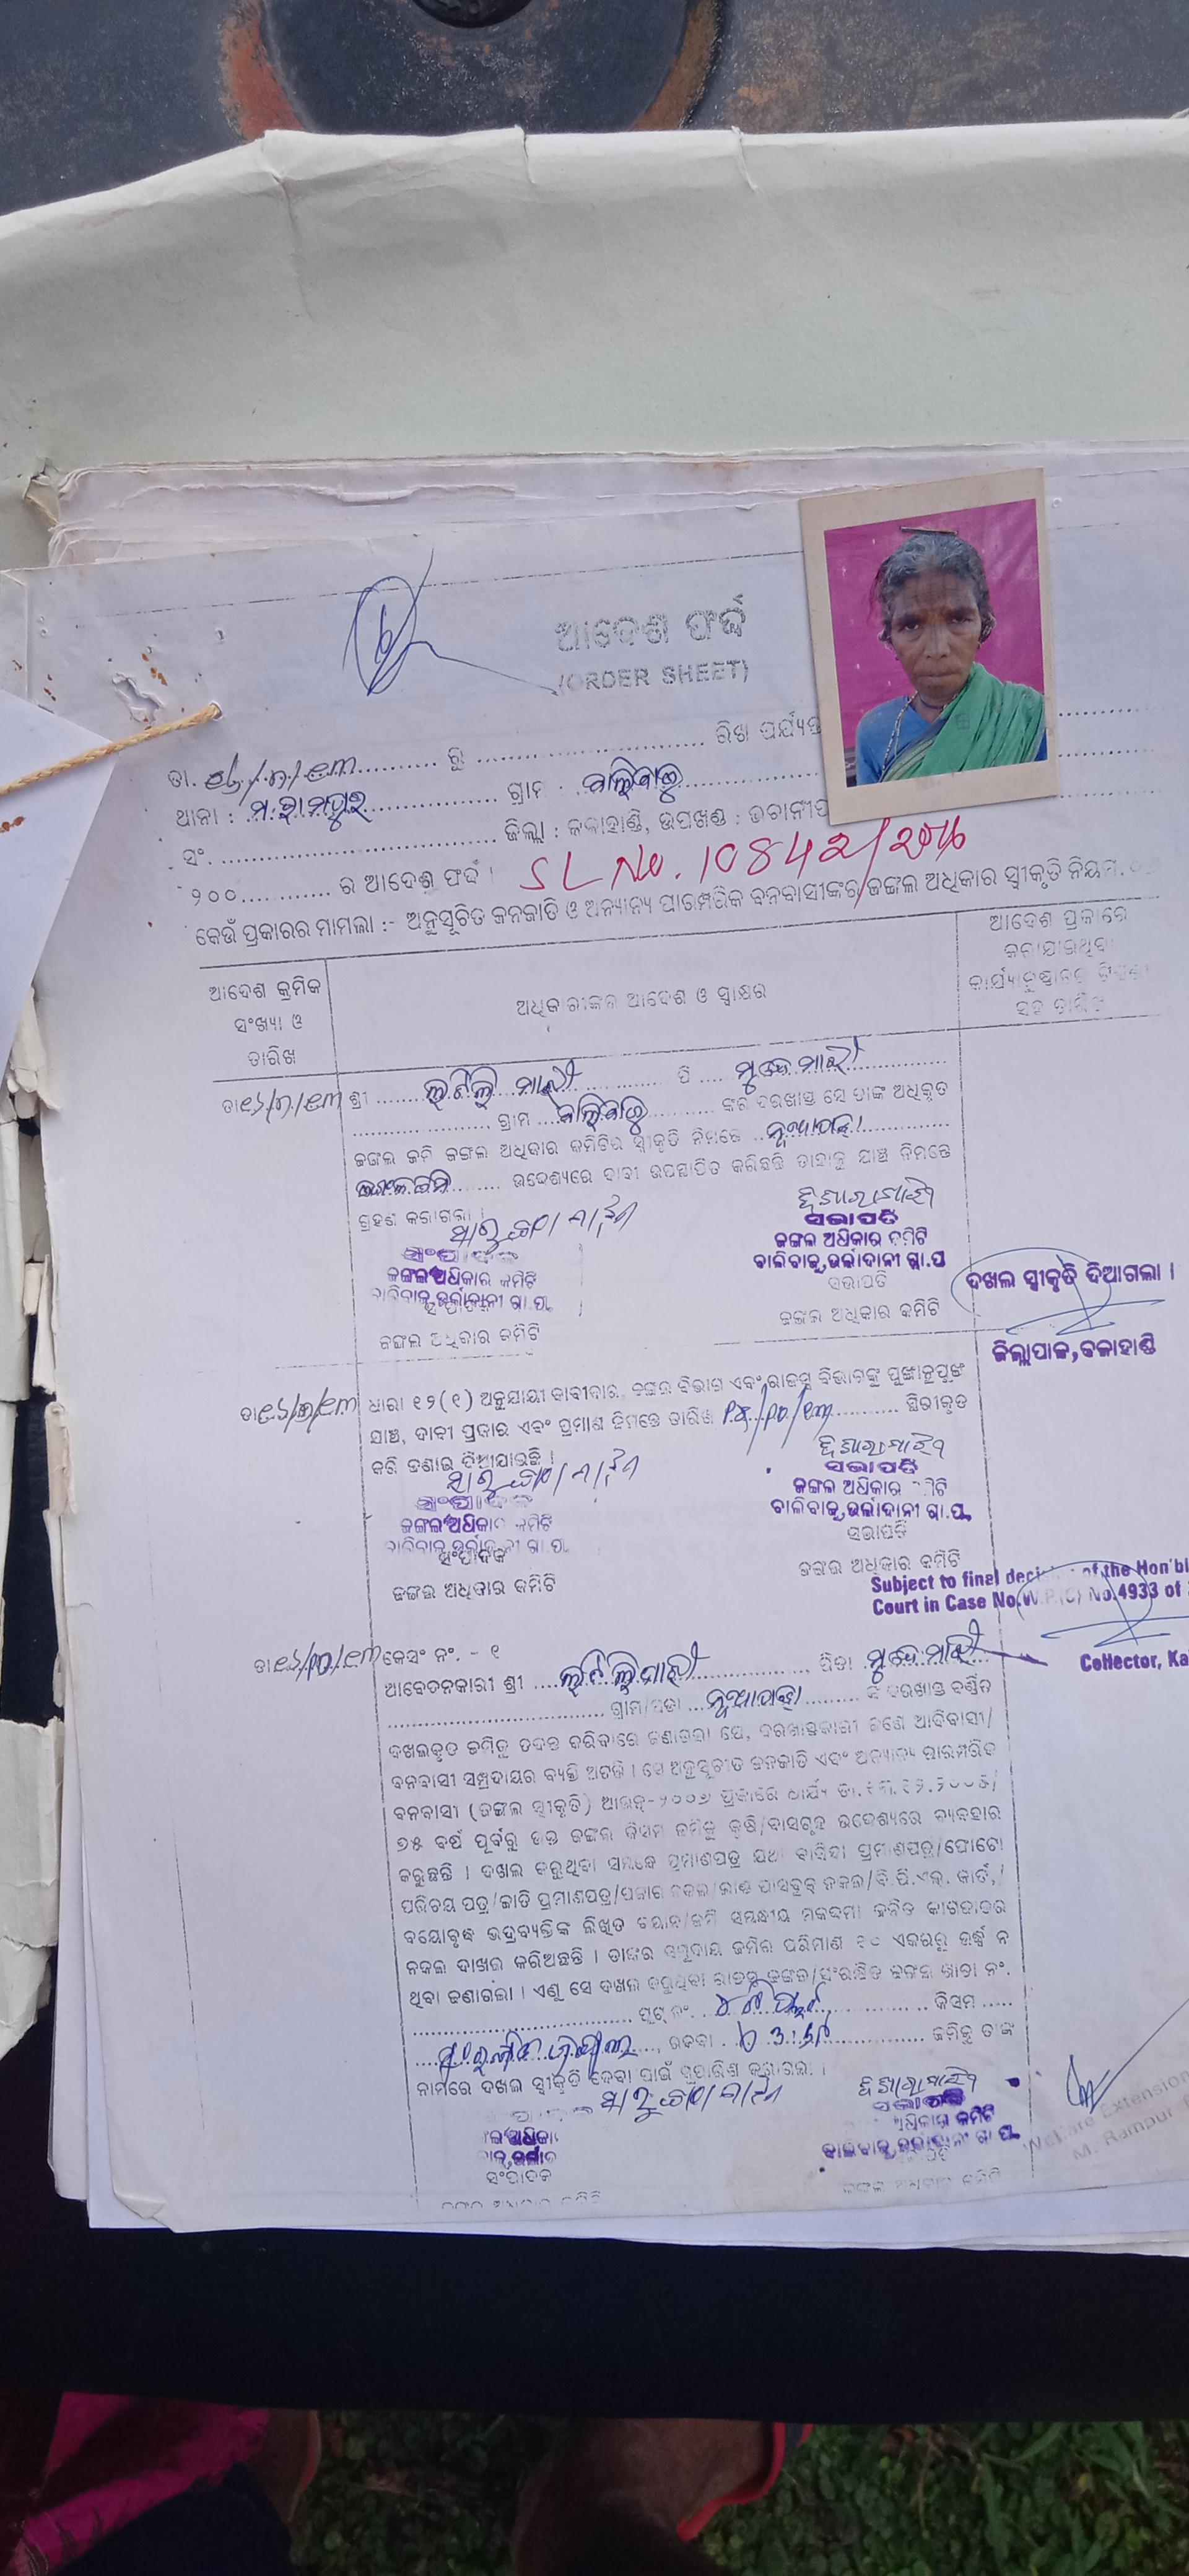 ଆଦେଶ ଫର୍ଦ୍ଦ
(ORDER SHEET)
ତା. ରୁ ରିଖ ପର୍ଯ୍ୟନ୍ତ
ଥାନା : ମ.ରାମପୁର ଗ୍ରାମ : ବାଲିବାଜୁ
ସଂ. ଜିଲ୍ଲା : କଳାହାଣ୍ଡି, ଉପଖଣ୍ଡ : ଭବାନୀପ
୨୦୦ ର ଆଦେଶ ଫର୍ଦ୍ଦ । SL No. 10842/
କେଉଁ ପ୍ରକାରର ମାମଲା :- ଅନୁସୂଚିତ ଜନଜାତି ଓ ଅନ୍ୟାନ୍ୟ ପାରମ୍ପରିକ ବନବାସୀଙ୍କର ଜଙ୍ଗଲ ଅଧିକାର ସ୍ୱୀକୃତି ନିୟମ.
ଆଦେଶ କ୍ରମିକ
ସଂଖ୍ୟା ଓ
ତାରିଖ
ଅଧିକାରୀଙ୍କର ଆଦେଶ ଓ ସ୍ୱାକ୍ଷର
ଆଦେଶ ପ୍ରକାରେ
କରାଯାଇଥିବା
କାର୍ଯ୍ୟାନୁଷ୍ଠାନର
ସହ ତାରିଖ
ଶ୍ରୀ ମାଝୀ ପି ମାଝୀ
ଗ୍ରାମ ବାଲିବାଜୁ ଙ୍କର ଦରଖାସ୍ତ ସେ ତାଙ୍କ ଅଧିକୃତ
ଜଙ୍ଗଲ ଜମି ଜଙ୍ଗଲ ଅଧିକାର କମିଟିର ସ୍ୱୀକୃତି ନିମନ୍ତେ ନୂଆପଡ଼ା
ଉଦ୍ଦେଶ୍ୟରେ ଦାବୀ ଉପସ୍ଥାପିତ କରିଛନ୍ତି ତାହାକୁ ଯାଞ୍ଚ ନିମନ୍ତେ
ଗ୍ରହଣ କରାଗଲା ।
ଜଙ୍ଗଲ ଅଧିକାର କମିଟି
ବାଲିବାଜୁ,ଉର୍ଲାଦାନୀ ଗ୍ରା.ପ.
ଜଙ୍ଗଲ ଅଧିକାର କମିଟି
ସଭାପତି
ଜଙ୍ଗଲ ଅଧିକାର କମିଟି
ବାଲିବାଜୁ,ଉର୍ଲାଦାନୀ ଗ୍ରା.ପ
ସଭାପତି
ଜଙ୍ଗଲ ଅଧିକାର କମିଟି
ଦଖଲ ସ୍ୱୀକୃତି ଦିଆଗଲା ।
ଜିଲ୍ଲାପାଳ,କଳାହାଣ୍ଡି
ଧାରା ୧୨(୧) ଅନୁଯାୟୀ ଦାବୀଦାର, ଜଙ୍ଗଲ ବିଭାଗ ଏବଂ ରାଜସ୍ୱ ବିଭାଗଙ୍କୁ ପୁଙ୍ଖାନୁପୁଙ୍ଖ
ଯାଞ୍ଚ, ଦାବୀ ପ୍ରକାର ଏବଂ ପ୍ରମାଣ ନିମନ୍ତେ ତାରିଖ ସ୍ଥିରୀକୃତ
କରି ଜଣାଇ ଦିଆଯାଉଛି ।
ଜଙ୍ଗଲ ଅଧିକାର କମିଟି
ବାଲିବାଜୁ,ଉର୍ଲାଦାନୀ ଗ୍ରା.ପ.
ସଂପାଦକ
ଜଙ୍ଗଲ ଅଧିକାର କମିଟି
ସଭାପତି
ଜଙ୍ଗଲ ଅଧିକାର କମିଟି
ବାଲିବାଜୁ,ଉର୍ଲାଦାନୀ ଗ୍ରା.ପ.
ସଭାପତି
ଜଙ୍ଗଲ ଅଧିକାର କମିଟି
Subject to final decision of the Hon'bl
Court in Case No.W.P.(C) No.4933 of
Collector, Ka
କେସ୍ ନଂ. - ୧
ଆବେଦନକାରୀ ଶ୍ରୀ ମାଝୀ, ପିତା ମାଝୀ
ଗ୍ରାମ/ପଡା ନୂଆପଡ଼ା ଙ୍କ ଦରଖାସ୍ତ ବର୍ଣ୍ଣିତ
ଦଖଲକୃତ ଜମିକୁ ତଦନ୍ତ କରିବାରେ ଜଣାଗଲା ଯେ, ଦରଖାସ୍ତକାରୀ ଜଣେ ଆଦିବାସୀ/
ବନବାସୀ ସମ୍ପ୍ରଦାୟର ବ୍ୟକ୍ତି ଅଟନ୍ତି । ସେ ଅନୁସୂଚୀତ ଜନଜାତି ଏବଂ ଅନ୍ୟାନ୍ୟ ପାରମ୍ପରିକ
ବନବାସୀ (ଜଙ୍ଗଲ ସ୍ୱୀକୃତି) ଆଇନ୍-୨୦୦୬ ପ୍ରକାରେ ଧାର୍ଯ୍ୟ ତା.୧୩.୧୨.୨୦୦୫/
୭୫ ବର୍ଷ ପୂର୍ବରୁ ଉକ୍ତ ଜଙ୍ଗଲ କିସମ ଜମିକୁ କୃଷି/ବାସଗୃହ ଉଦ୍ଦେଶ୍ୟରେ ବ୍ୟବହାର
କରୁଛନ୍ତି । ଦଖଲ କରୁଥିବା ସମ୍ବନ୍ଧେ ପ୍ରମାଣପତ୍ର ଯଥା ବାସିନ୍ଦା ପ୍ରମାଣପତ୍ର/ଫୋଟୋ
ପରିଚୟ ପତ୍ର/ଜାତି ପ୍ରମାଣପତ୍ର/ପଟ୍ଟାର ନକଲ/ବ୍ୟାଙ୍କ ପାସବୁକ୍ ନକଲ/ବି.ପି.ଏଲ୍. କାର୍ଡ/
ବୟୋବୃଦ୍ଧ ଭଦ୍ରବ୍ୟକ୍ତିଙ୍କ ଲିଖିତ ବୟାନ/ଜମି ସମ୍ବନ୍ଧୀୟ ମକଦ୍ଦମା ଜନିତ କାଗଜାତର
ନକଲ ଦାଖଲ କରିଅଛନ୍ତି । ତାଙ୍କର ସମୁଦାୟ ଜମିର ପରିମାଣ ୧୦ ଏକରରୁ ଉର୍ଦ୍ଧ୍ୱ ନ
ଥିବା ଜଣାଗଲା । ଏଣୁ ସେ ଦଖଲ କରୁଥିବା ରାଜସ୍ୱ ଜଙ୍ଗଲ/ସଂରକ୍ଷିତ ଜଙ୍ଗଲ ଖାତା ନଂ.
ପ୍ଲଟ୍ ନଂ. କିସମ
ରକବା ଜମିକୁ ତାଙ୍କ
ନାମରେ ଦଖଲ ସ୍ୱୀକୃତି ଦେବା ପାଇଁ ସୁପାରିଶ କରାଗଲା ।
ସଂପାଦକ
ଜଙ୍ଗଲ ଅଧିକାର କମିଟି
ସଭାପତି
ଅଧିକାର କମିଟି
ବାଲିବାଜୁ,ଉର୍ଲାଦାନୀ ଗ୍ରା.ପ.
ଜଙ୍ଗଲ ଅଧିକାର କମିଟି
Welfare Extension
M. Rampur